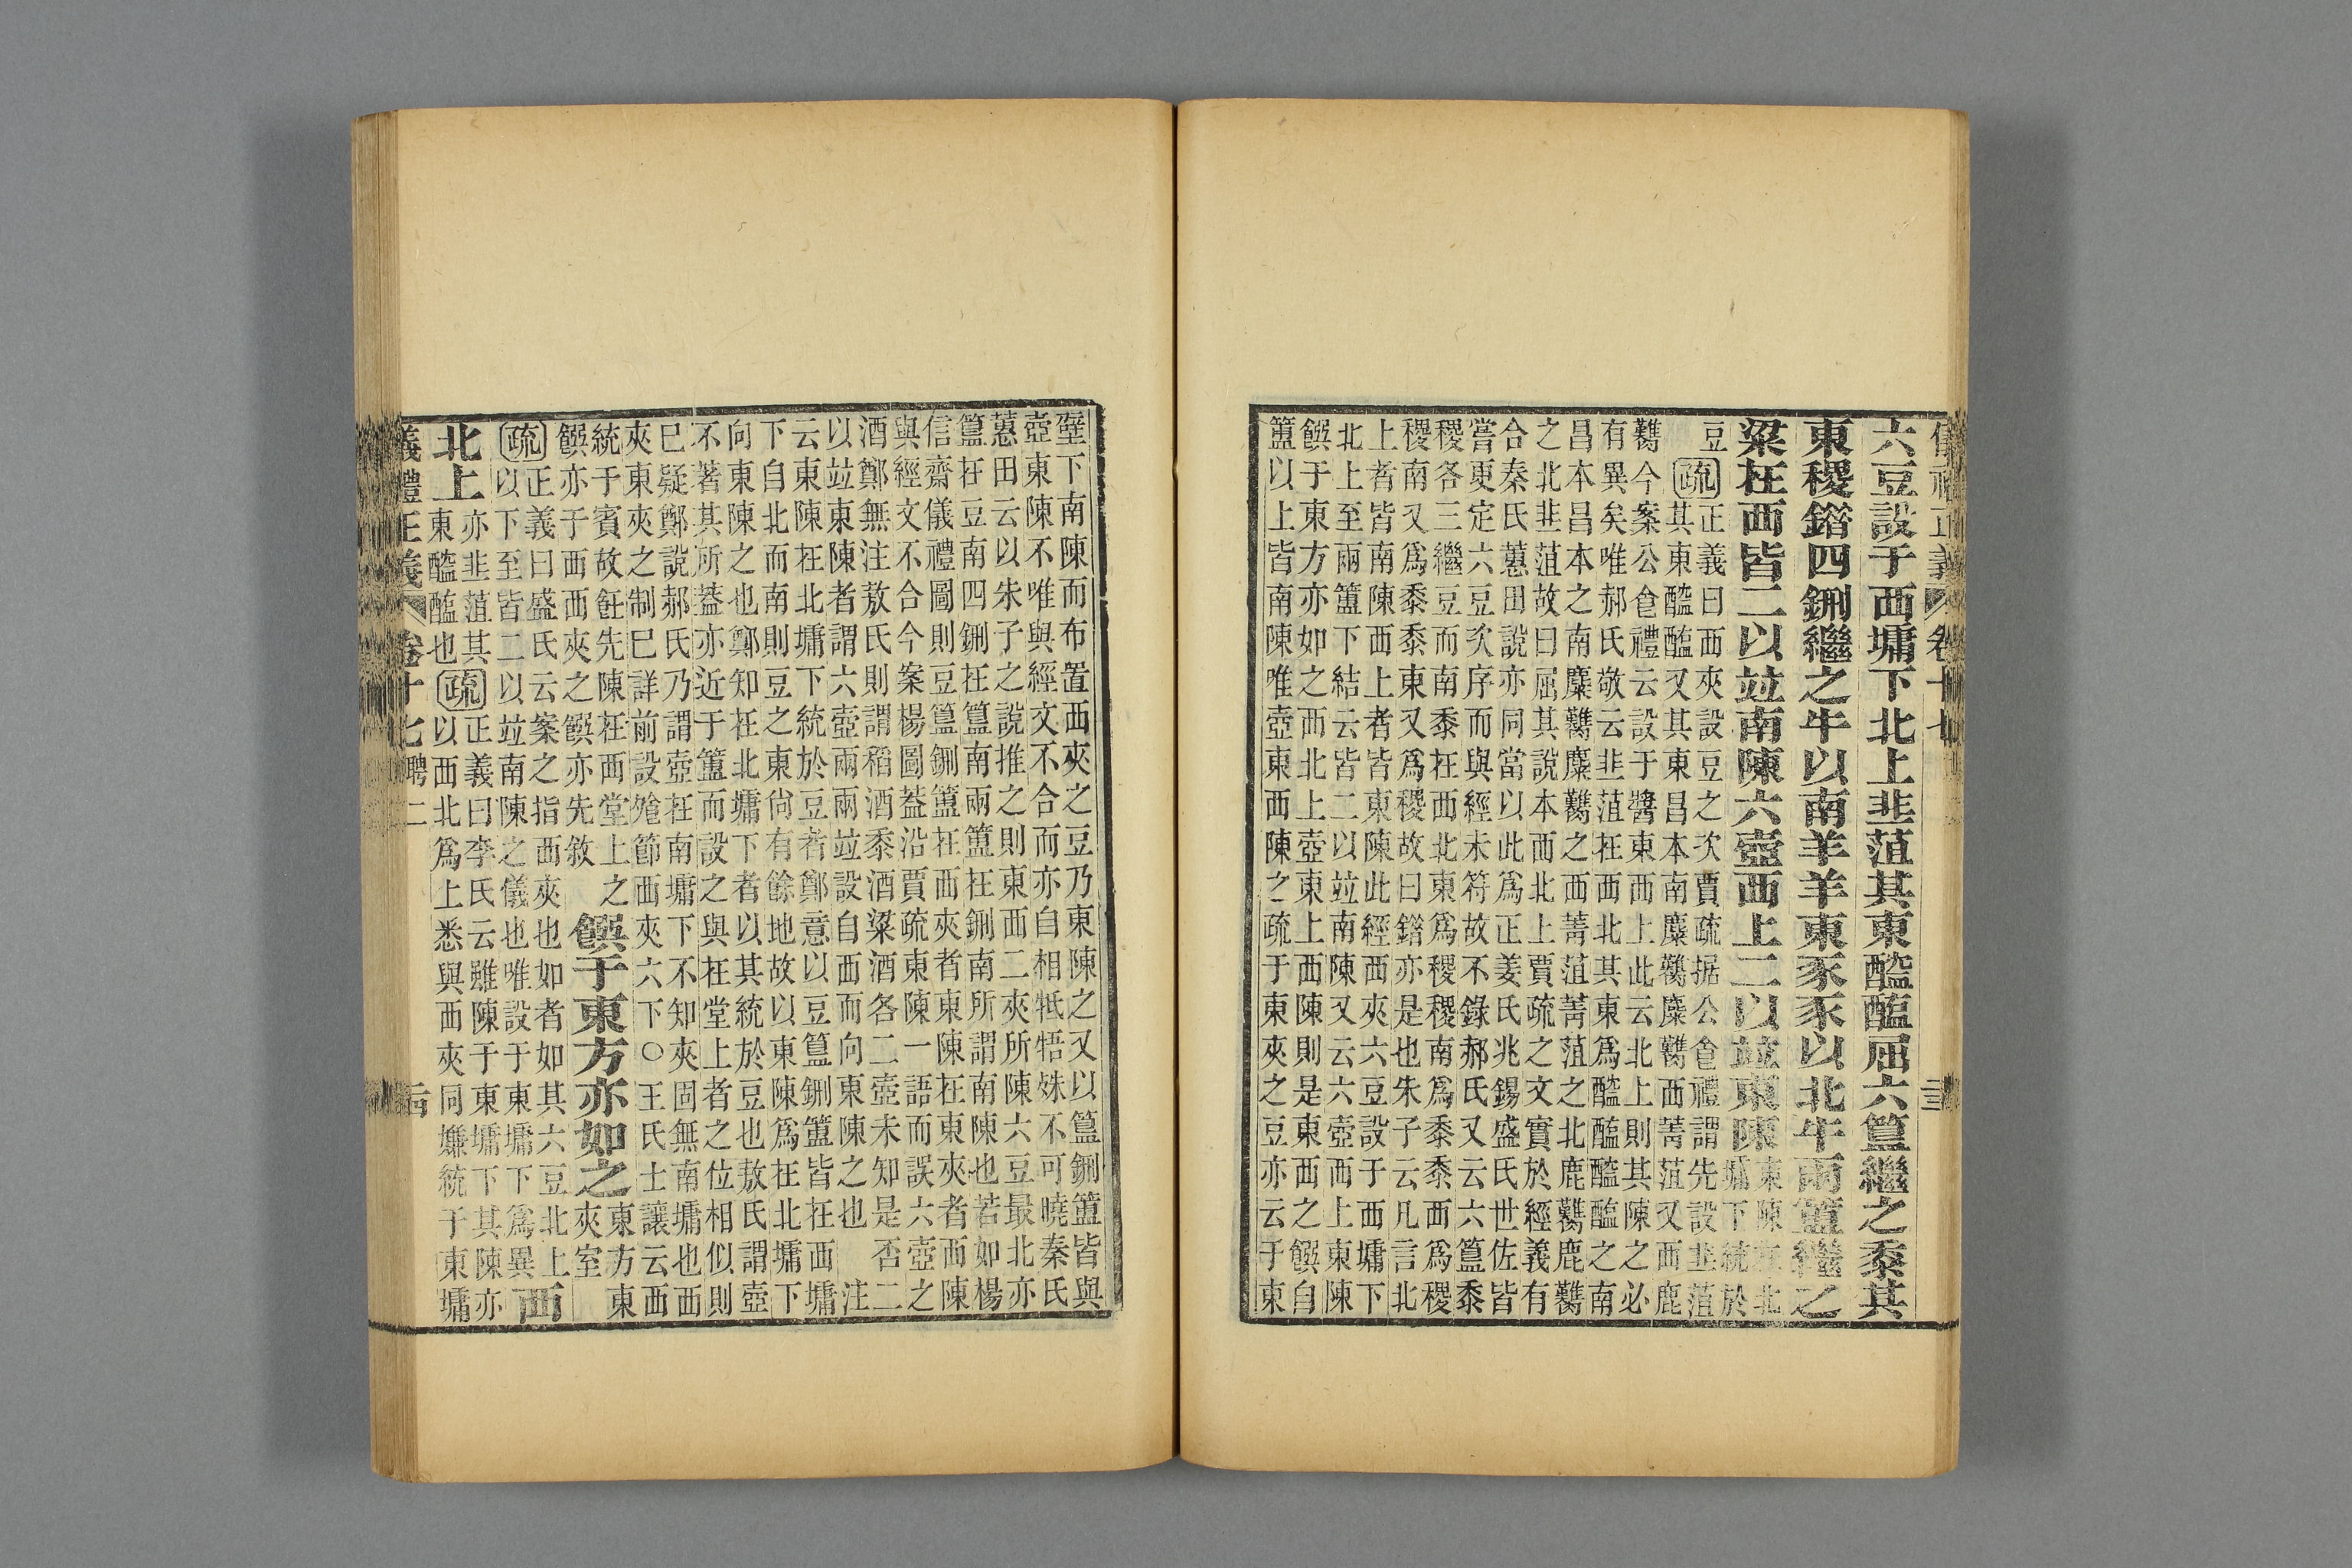 儀禮正義 卷十七
六豆設于西墉下北上韭菹其東醓醢屈六簋繼之黍其
東稷錯四鉶繼之牛以南羊羊東豕豕以北牛兩簠繼之
粱在西皆二以竝南陳六壺西上二以竝東陳東陳在北
墉下統於
豆疏正義曰西夾設豆之次賈疏据公食禮謂先設韭菹
其東醓醢又其東昌本南麋臡麋臡西菁菹又西鹿
臡今案公食禮云設于醬東西上此云北上則其陳之必
有異矣唯郝氏敬云韭菹在西北其東爲醓醢醓醢之南
昌本昌本之南麋臡麋臡之西菁菹菁菹之北鹿臡鹿臡
之北韭菹故曰屈其說本西北上賈疏之文實於經義有
合秦氏蕙田說亦同當以此爲正姜氏兆錫盛氏世佐皆
嘗更定六豆次序而與經未符故不錄郝氏又云六簋黍
稷各三繼豆而南黍在西北東爲稷稷南爲黍黍西爲稷
稷南又爲黍黍東又爲稷故曰錯亦是也朱子云凡言北
上者皆南陳西上者皆東陳此經西夾六豆設于西墉下
北上至兩簠下結云皆二以竝南陳又云六壺西上東陳
饌于東方亦如之西北上壺東上西陳則是東西之饌自
簠以上皆南陳唯壺東西陳之疏于東夾之豆亦云于東
壁下南陳而布置西夾之豆乃東陳之又以簋鉶簠皆與
壺東陳不唯與經文不合而亦自相牴牾姝不可曉秦氏
蕙田云以朱子之說推之則東西二夾所陳六豆最北亦
簋在豆南四鉶在簋南兩簠在鉶南所謂南陳也若如楊
信齋儀禮圖則豆簋鉶簠在西夾者東陳在東夾者西陳
與經文不合今案楊圖蓋沿賈疏東陳一語而誤六壺之
酒鄭無注敖氏則謂稻酒黍酒粱酒各二壺未知是否二
以竝東陳者謂六壺兩兩竝設自西而向東陳之也　注
云東陳在北墉下統於豆者鄭意以豆簋鉶簠皆在西墉
下自北而南則豆之東尙有餘地故以東陳爲在北墉下
向東陳之也鄭知在北墉下者以其統於豆也敖氏謂壺
不著其所蓋亦近于簠而設之與在堂上者之位相似則
巳疑鄭說郝氏乃謂壺在南墉下不知夾固無南墉也西
夾東夾之制巳詳前設飧節西夾六下○王氏士讓云西
統于賓故飪先陳在西堂上之
饌亦于西西夾之饌亦先敘
饌于東方亦如之東方東
夾室
疏正義曰盛氏云案之指西夾也如者如其六豆北上
以下至皆二以竝南陳之儀也唯設于東墉下爲異
西
北上亦韭菹其
東醓醢也
疏正義曰李氏云雖陳于東墉下其陳亦
以西北爲上悉與西夾同嫌統于東墉
義禮正義 卷十七聘二